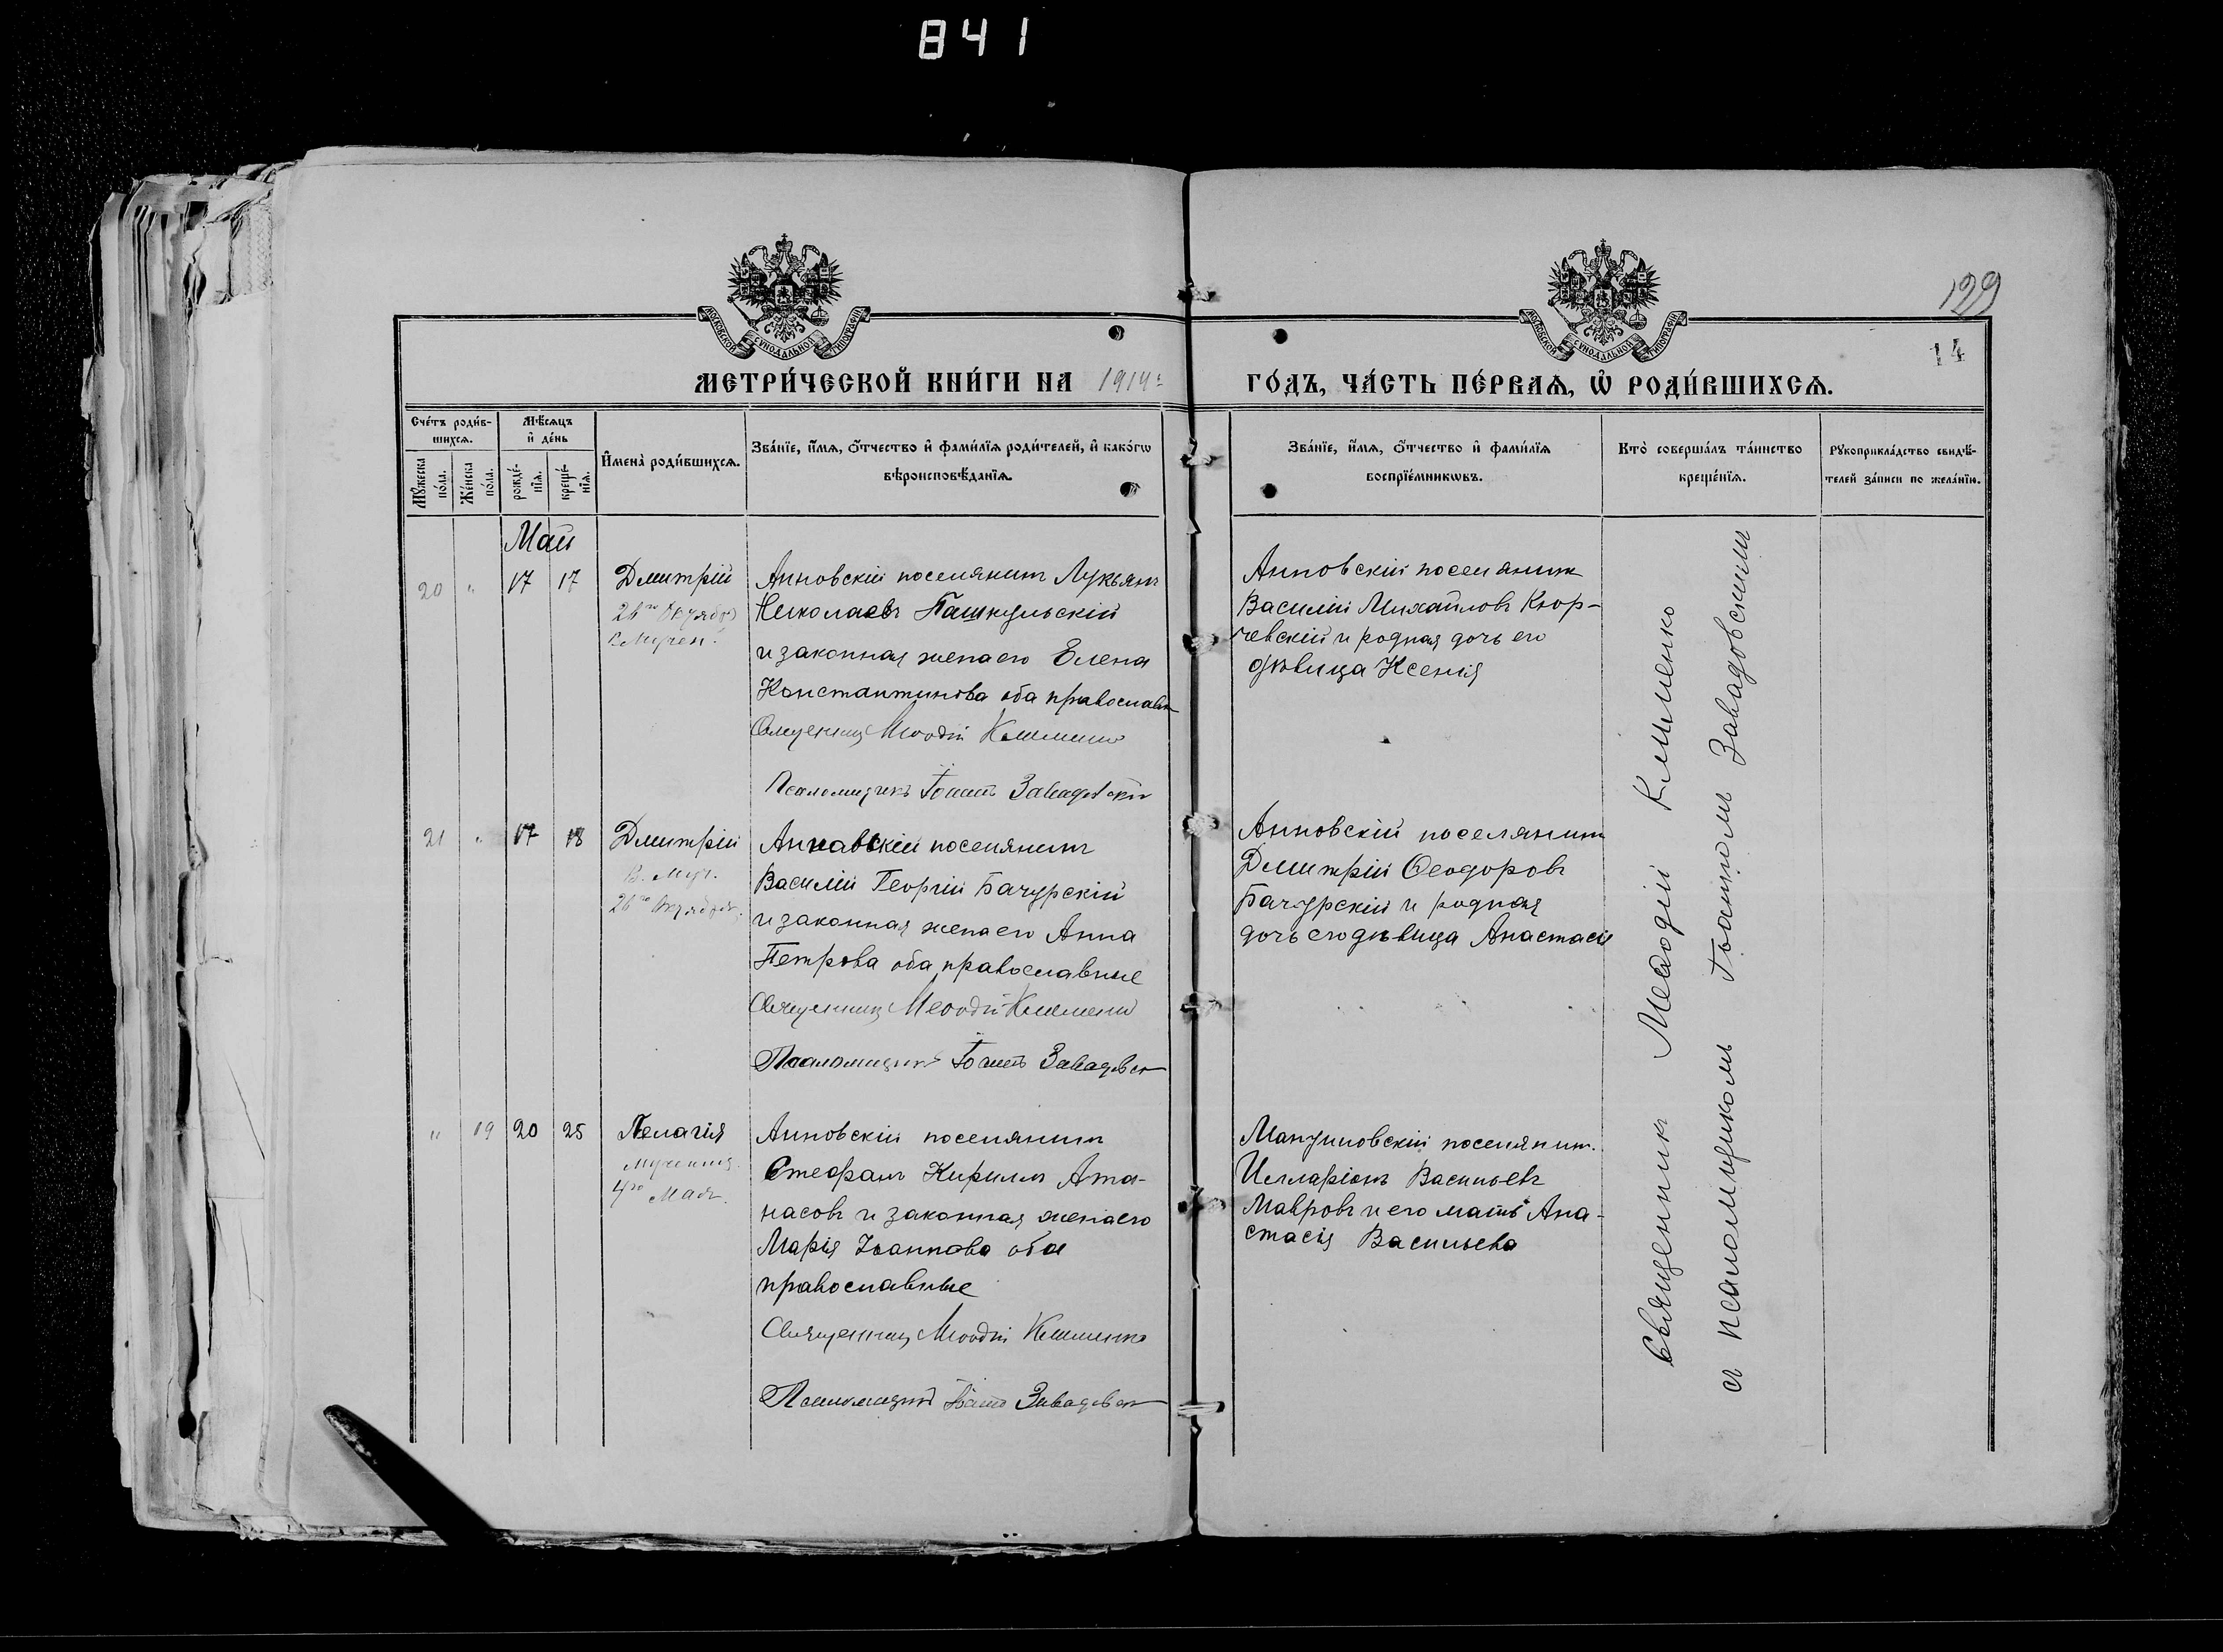 841
129
14
МЕТРИ́ЧЕСКОЙ КНИ́ГИ НА 1914 г.
ГО́ДЪ, ЧА́СТЬ ПЕ́РВАѦ, Ѡ҆ РОДИ́ВШИХСѦ.
Сче́тъ роди́в-
шихсѧ.
Мꙋ́жеска по́ла.
Же́нска по́ла.
Мѣ́сѧцъ
и҆ де́нь
рожде́-
нїѧ.
креще́-
нїѧ.
И҆мена̀ роди́вшихсѧ.
Зва́нїе, и҆́мѧ, ѻ҆́тчество и҆ фами́лїѧ роди́телей, и҆ како́гѡ
вѣроисповѣ́данїѧ.
Зва́нїе, и҆́мѧ, ѻ҆́тчество и҆ фами́лїѧ
воспрїе́мникѡвъ.
Кто̀ соверша́лъ та́инство
креще́нїѧ.
Рꙋкоприкла́дство свидѣ́-
телей за́писи по жела́нїю.
Май
20 " 17 17 Дмитрій
26го Октября
В. Мучен.
Анновскій поселянинъ Лукьянъ
Николаевъ Пашкульскій
и законная жена его Елена
Константинова оба православн
Священникъ Меѳодій Клименко
Псаломщикъ Іоаннъ Завадовскій
Анновскій поселянинъ
Василій Михайловъ Кюр-
чевскій и родная дочь его
дѣвица Ксенія
21 " 17 18 Дмитрій
В. Муч.
26го Октября.
Анновскій поселянинъ
Василій Георгій Бачурскій
и законная жена его Анна
Петрова оба православные
Священникъ Меѳодій Клименко
Псаломщикъ Іоаннъ Завадовск
Анновскій поселянинъ
Дмитрій Ѳеодоровъ
Бачурскій и родная
дочь его дѣвица Анастасія
" 19 20 25 Пелагія
мученица
4го Мая.
Анновскій поселянинъ
Стефанъ Кириллъ Ата-
насовъ и законная жена его
Марія Іоаннова оба
православные
Священникъ Меѳодій Клименко
Псаломщикъ Іоаннъ Завадовск
поселянинъ.
Илларіонъ Васильевъ
Мавровъ и его мать Ана-
стасія Васильева
Священникъ Меѳодій Клименко
съ псаломщикомъ Іоанномъ Завадовскимъ